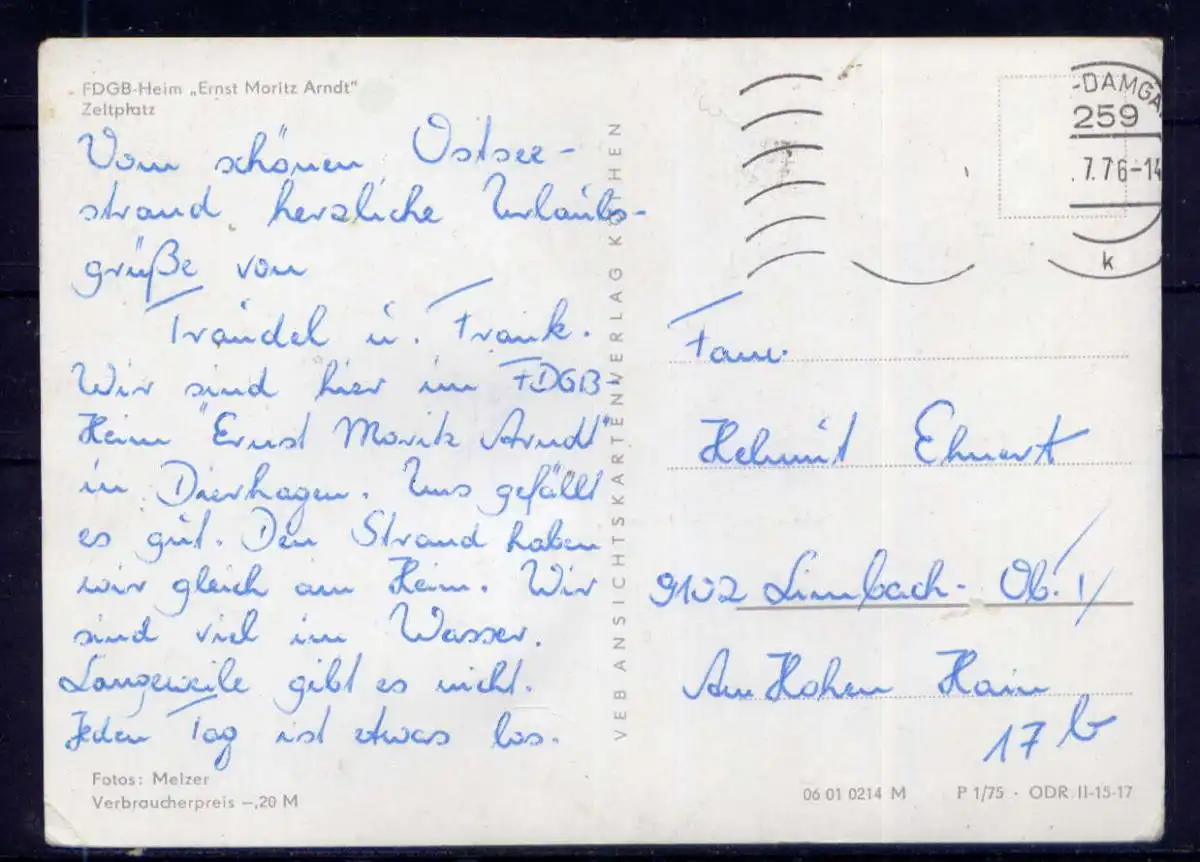 FDGB-Heim „Ernst Moritz Arndt"
Zeltplatz
Vom schönen Ostsee-
strand herzliche Urlaubs-
grüße von
Traudel u. Frank.
Wir sind hier im FDGB-
Heim "Ernst Moritz Arndt"
in Dierhagen. Uns gefällt
es gut. Den Strand haben
wir gleich am Heim. Wir
sind viel im Wasser.
Langeweile gibt es nicht.
Jeden Tag ist etwas los.
Fotos: Melzer
Verbraucherpreis –,20 M
VEB ANSICHTSKARTENVERLAG KÖTHEN
-DAMGA
259
7.76-14
k
Fam.
Helmut Ehnert
9102 Limbach- Ob. 1/
Am Hohen Hain
17 b
06 01 0214 M P 1/75 · ODR. II-15-17